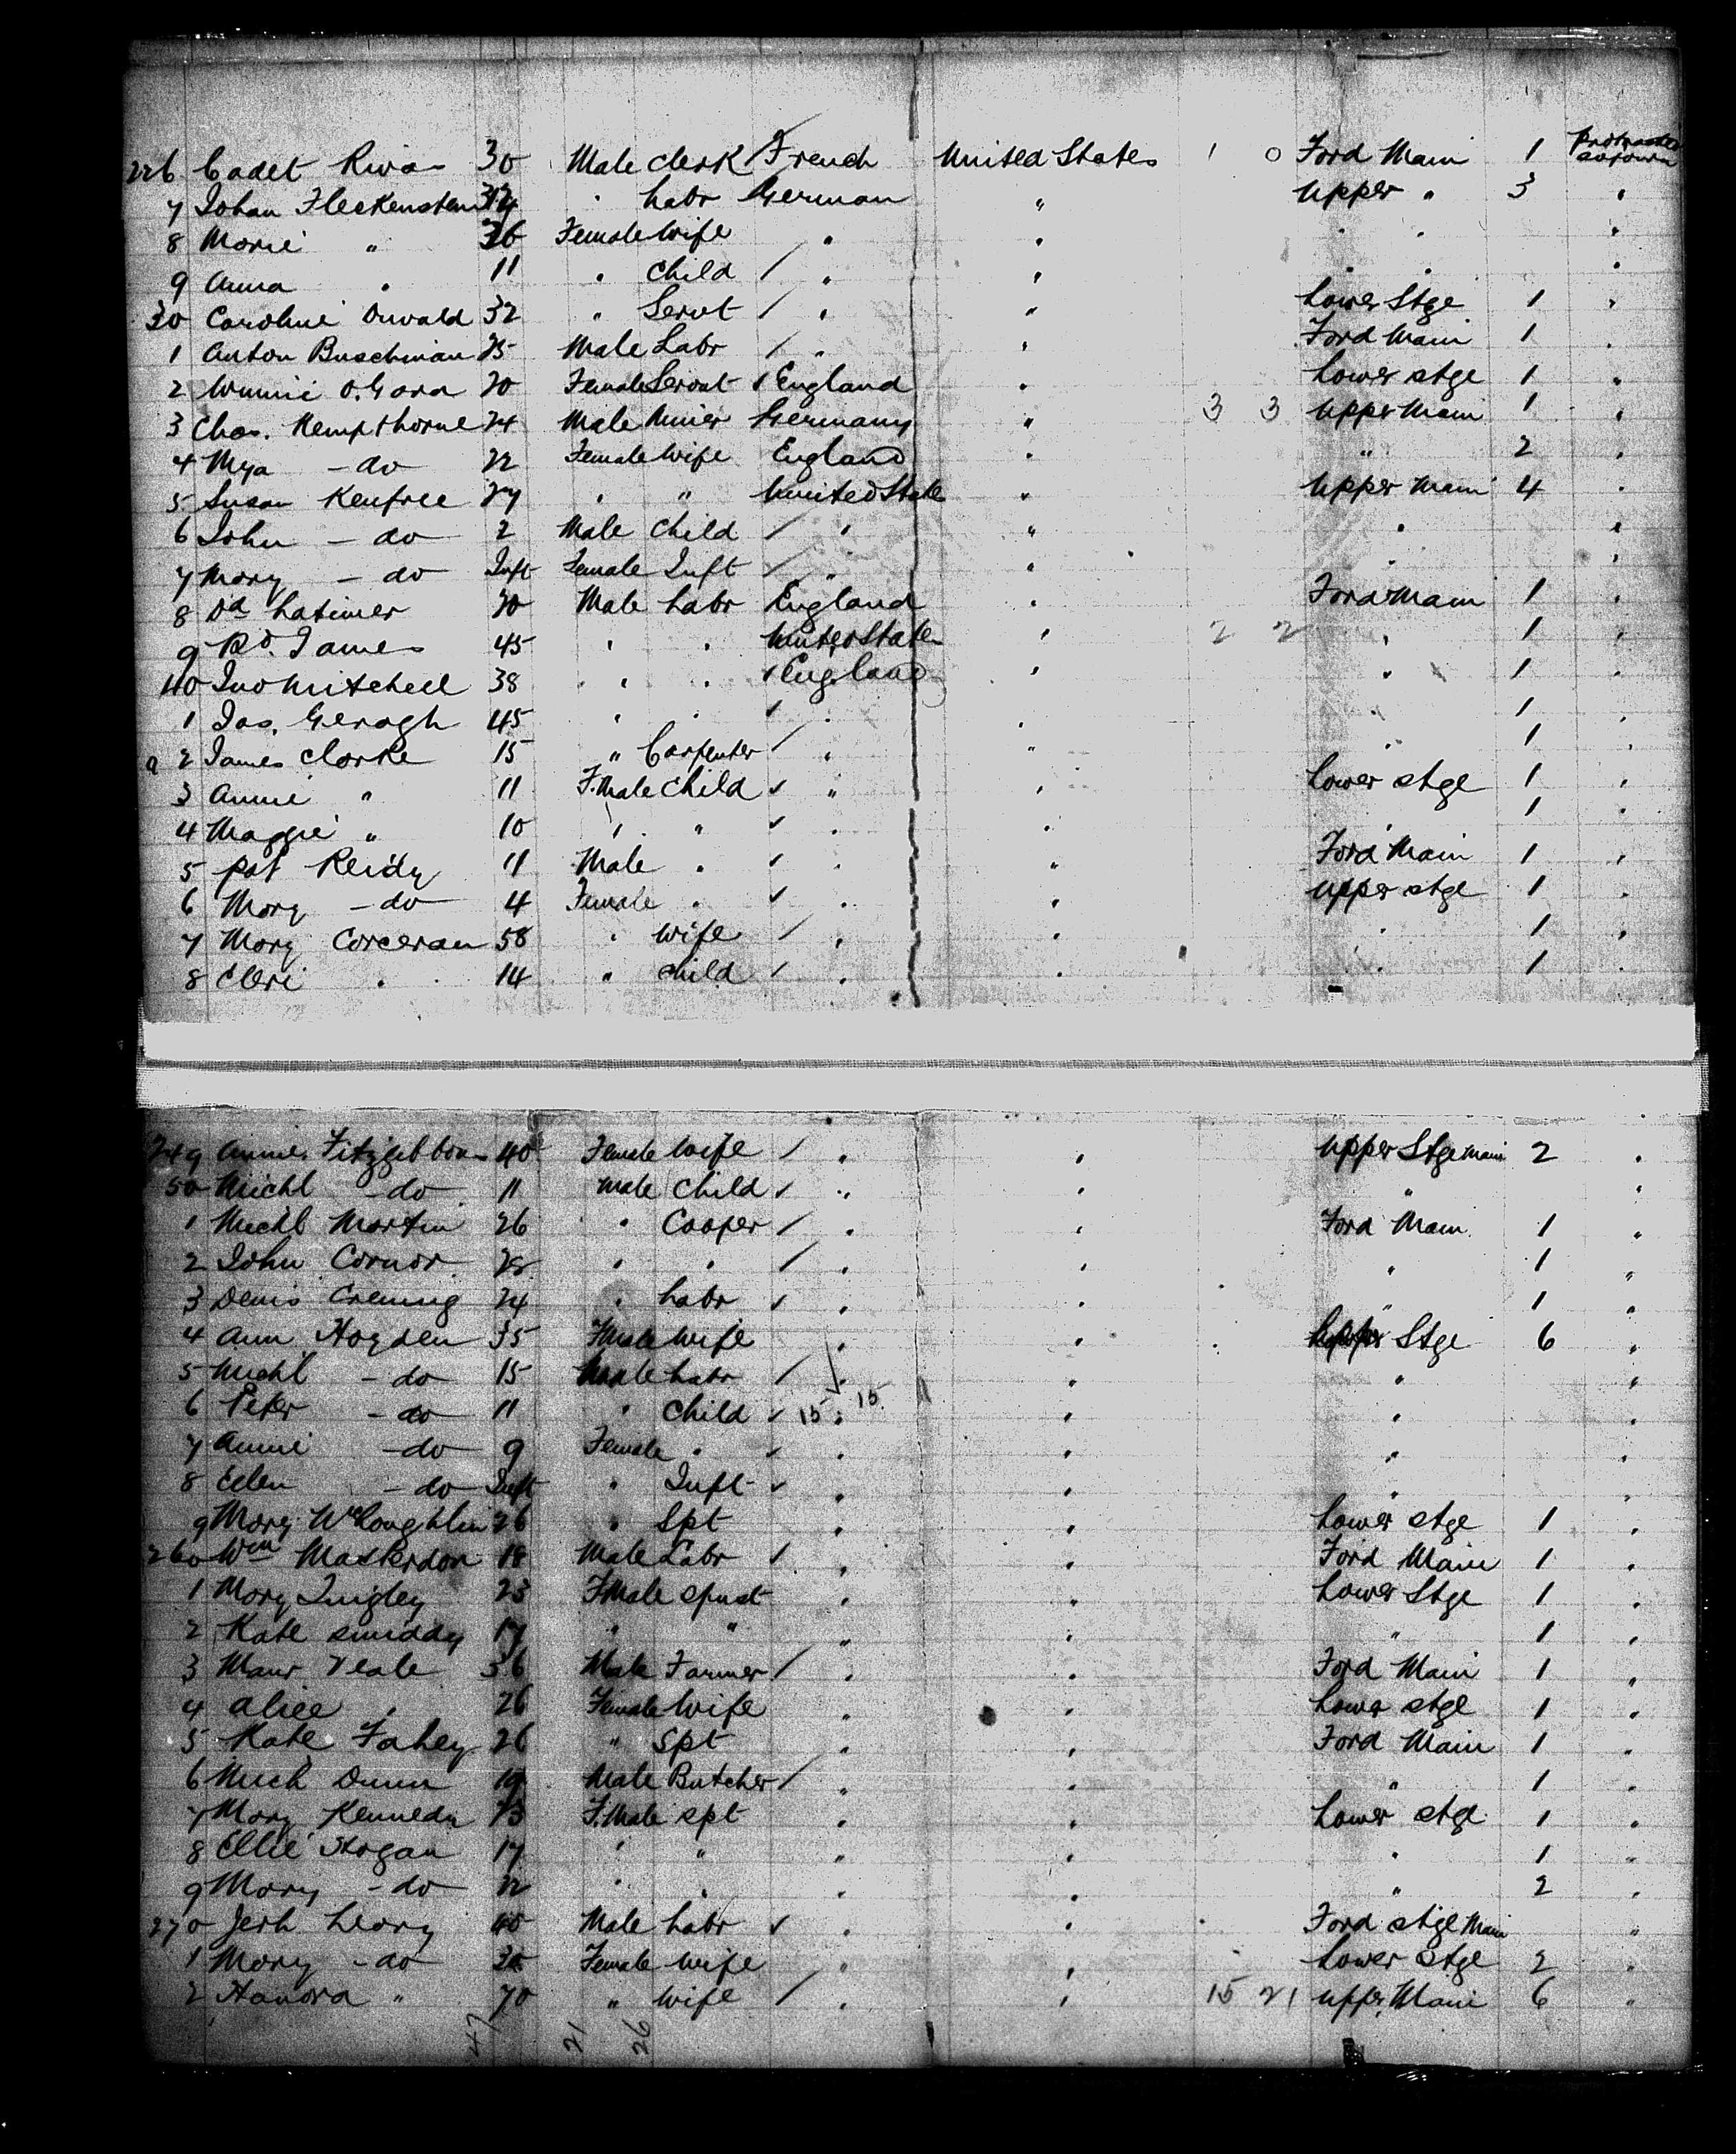 226 Cadet Rivas 30 Male Clerk French United States 1 0 Ford Main 1 Protracted sojourn
7 Johan Fleckenstein Labr German " Upper " 3 "
8 Marie " 36 Female Wife " " " " "
9 Anna " 11 " Child / " " " " "
30 Caroline Oswald 32 " Servt / " " Lower Stge 1 "
1 Anton Buschman 25 Male Labr / " " Ford Main 1 "
2 Winnie O.Gara 20 Female Servat / England " Lower stge 1 "
3 Chas. Kempthorne 24 Male Miner Germany " 3 3 Upper Main 1 "
4 Mya - do 22 Female Wife England " " 2 "
5 Susan Renfree 27 " " United State " Upper Main 4 "
6 John - do 2 Male Child / " " " "
7 Mary - do Inft Female Inft / " " " "
8 Dd Latimer 20 Male Labr England " Ford Main 1 "
9 Rd. James 45 " " United States " 2 2 " 1 "
40 Jno Mitchell 38 " " / England " " 1 "
1 Jas. Geragh 45 " " / " " 1 "
2 James Clarke 15 " Carpenter / " " " 1 "
3 Annie " 11 F.Male Child / " " Lower stge 1 "
4 Maggie " 10 " " / " " " 1 "
5 Pat Reidy 11 Male " / " " Ford Main 1 "
6 Mary - do 4 Female " / " " Upper stge 1 "
7 Mary Corceran 58 " Wife / " " " 1 "
8 " 14 " Child / " " " 1 "
249 Annie Fitzgibbon 40 Female Wife / " " Upper Stge Main 2 "
50 Michl - do 11 Male Child / " " " "
1 Michl Martin 26 " Cooper / " " Ford Main 1 "
2 John Connor 28 " " / " " " 1 "
3 Denis 24 " Labr / " " " 1 "
4 Ann Hayden 35 F.Male Wife " " Stge 6 "
5 Michl - do 15 Male Labr / " " " "
6 Peter - do 11 " Child / 15 " 15 " " "
7 Annie - do 9 Female " / " " " "
8 Ellen - do Inft " Inft / " " " "
9 Mary McLoughlin 26 " Spt " " Lower stge 1 "
260 Wm 18 Male Labr / " " Ford Main 1 "
1 Mary Quigley 23 F.Male spnst " " Lower Stge 1 "
2 Kate Smiddy 17 " " " " " 1 "
3 Maur Veale 36 Male Farmer / " " Ford Main 1 "
4 Alice " 26 Female Wife " " Lower stge 1 "
5 Kate Fahey 26 " Spt " " Ford Main 1 "
6 Mich Dunn 19 Male Butcher / " " " 1 "
7 Mary Kennedy F.Male spt " " Lower stge 1 "
8 Ellie Hogan 17 " " " " " 1 "
9 Mary - do 22 " " " " " 2 "
270 Jerh Leary 40 Male Labr / " " Ford stge Main "
1 Mary - do 30 Female Wife " " Lower Stge 2 "
2 Hanora " 70 " Wife / " " 15 21 Upper Main 6 "
47 21 26